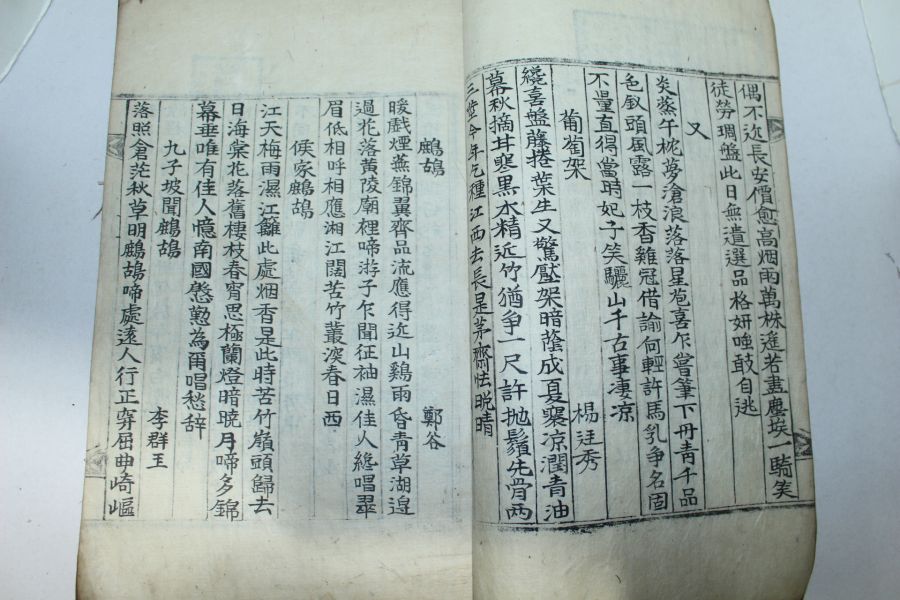 偶不近長安價愈高烟雨萬株迷若盡塵埃一騎笑
徒勞琱盤此日無遺選品格妍嗤敢自逃
又
炎蒸午枕夢滄浪落落星苞喜乍嘗筆下丹靑千品
色釵頭風露一枝香雞冠借諭何輕許馬乳爭名固
不量直得當時妃子笑驪山千古事凄凉
葡萄架 楊廷秀
纔喜盤藤捲葉生又驚壓架暗蔭成夏褰凉潤靑油
幕秋摘甘寒黑水精近竹猶爭一尺許抛鬚先胃兩
三莖今年乞種江西去長是茅齋怯晩晴
鷓鴣 鄭谷
暖戱煙蕪錦翼齊品流應得近山鷄雨昏靑草湖邊
過花落黃陵廟裡啼游子乍聞征袖濕佳人纔唱翠
眉低相呼相應湘江闊苦竹叢深春日西
侯家鷓鴣
江天梅雨濕江籬此處烟香是此時苦竹嶺頭歸去
日海棠花落舊棲枝春宵思極蘭燈暗曉月啼多錦
幕垂唯有佳人憶南國慇懃為爾唱愁辞
九子坡聞鷓鴣 李群玉
落照倉茫秋草明鷓鴣啼處遠人行正穿屈曲崎嶇